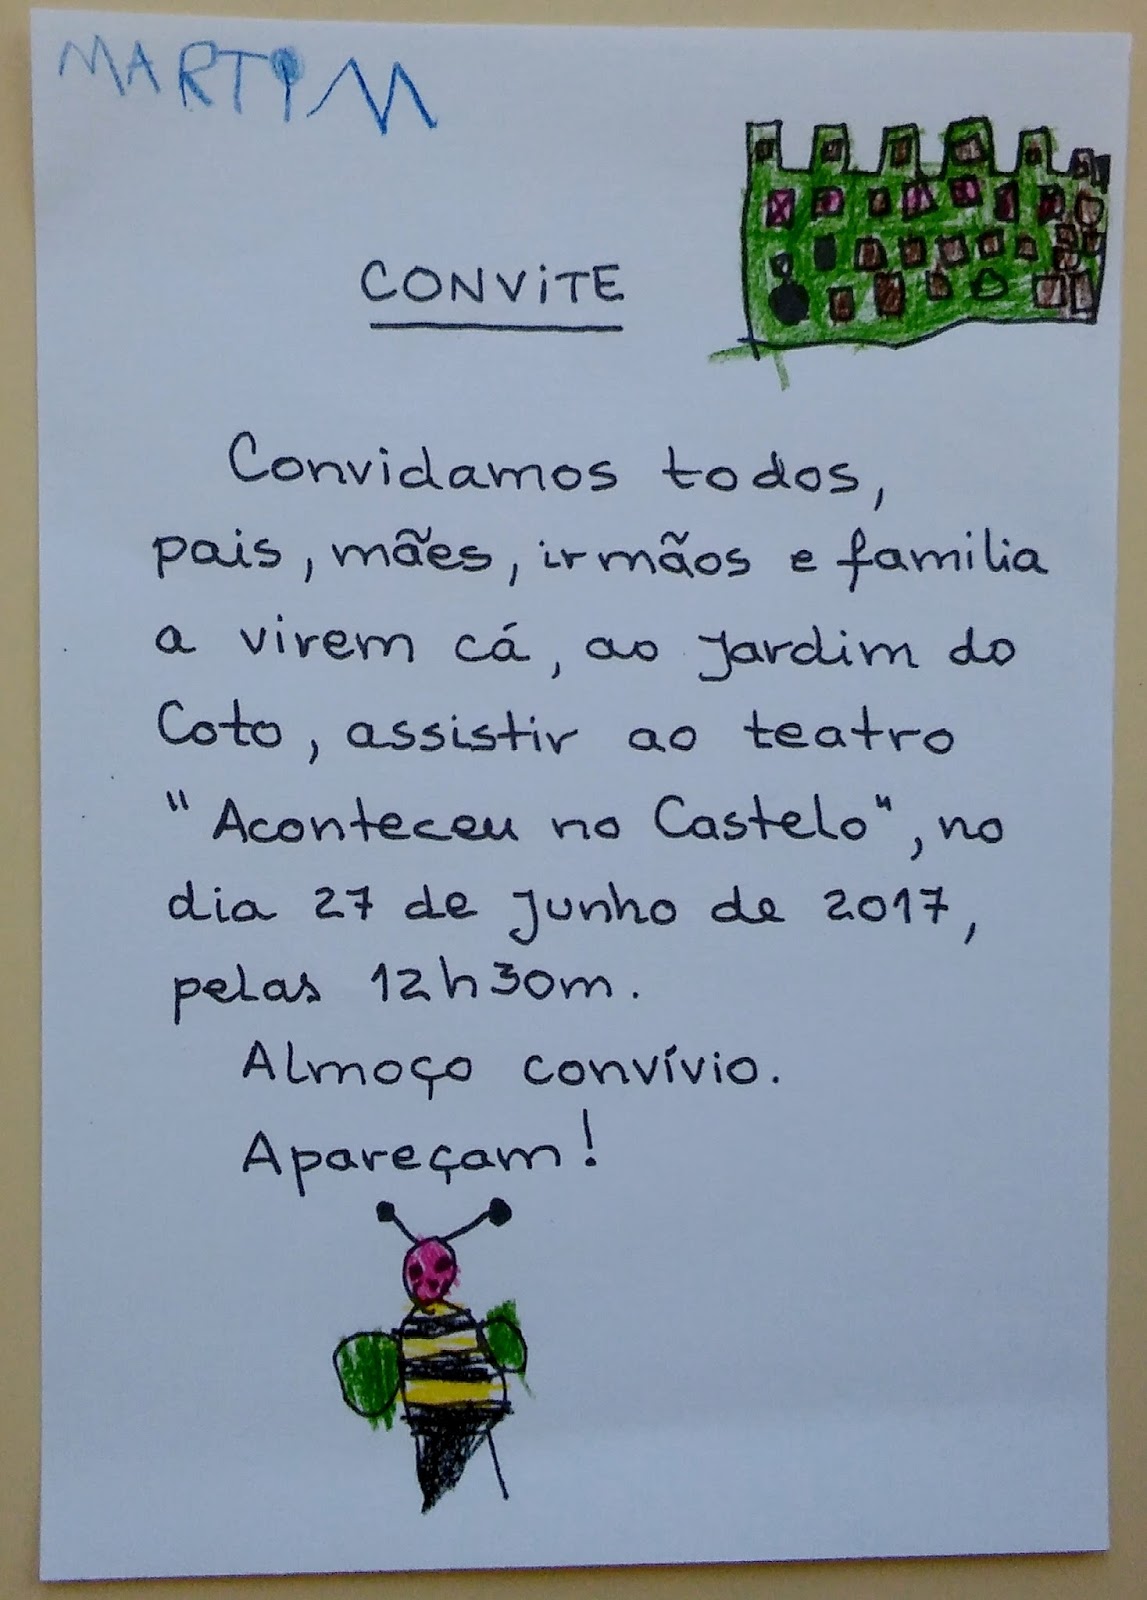 MARTIM
CONVITE
Convidamos todos,
pais, mães, irmãos e familia
a virem cá, ao Jardim do
Coto, assistir ao teatro
"Aconteceu no Castelo", no
dia 27 de Junho de 2017,
pelas 12h30m.
Almoço convívio.
Apareçam!